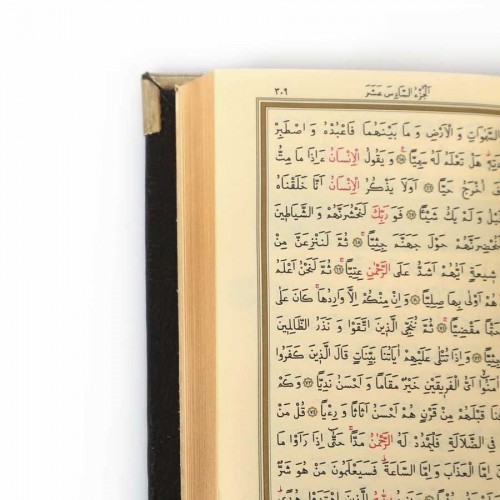 الجزء السادس عشر ٣٠٩
السَّمٰوَاتِ وَالْاَرْضِ وَ مَا بَيْنَهُمَا فَاعْبُدْهُ وَ اصْطَبِرْ
هَلْ تَعْلَمُ لَهُ سَمِيًّا ۝٦٥ وَ يَقُولُ الْاِنْسَانُ ءَاِذَا مَا مِتُّ
اُخْرَجُ حَيًّا ۝٦٦ اَوَلَا يَذْكُرُ الْاِنْسَانُ اَنَّا خَلَقْنَاهُ
قَبْلُ وَ لَمْ يَكُ شَيْئًا ۝٦٧ فَوَ رَبِّكَ لَنَحْشُرَنَّهُمْ وَ الشَّيَاطِينَ
لَنُحْضِرَنَّهُمْ حَوْلَ جَهَنَّمَ جِثِيًّا ۝٦٨ ثُمَّ لَنَنْزِعَنَّ مِنْ
شِيعَةٍ اَيُّهُمْ اَشَدُّ عَلَى الرَّحْمٰنِ عِتِيًّا ۝٦٩ ثُمَّ لَنَحْنُ اَعْلَمُ
هُمْ اَوْلٰى بِهَا صِلِيًّا ۝٧٠ وَ اِنْ مِنْكُمْ اِلَّا وَارِدُهَا كَانَ عَلٰى
حَتْمًا مَقْضِيًّا ۝٧١ ثُمَّ نُنَجِّى الَّذِينَ اتَّقَوْا وَ نَذَرُ الظَّالِمِينَ
جِثِيًّا ۝٧٢ وَ اِذَا تُتْلٰى عَلَيْهِمْ اٰيَاتُنَا بَيِّنَاتٍ قَالَ الَّذِينَ كَفَرُوا
اٰمَنُوا اَىُّ الْفَرِيقَيْنِ خَيْرٌ مَقَامًا وَ اَحْسَنُ نَدِيًّا ۝٧٣ وَ كَمْ
قَبْلَهُمْ مِنْ قَرْنٍ هُمْ اَحْسَنُ اَثَاثًا وَ رِءْيًا ۝٧٤ قُلْ مَنْ
فِى الضَّلَالَةِ فَلْيَمْدُدْ لَهُ الرَّحْمٰنُ مَدًّا حَتّٰى اِذَا رَاَوْا مَا
اِمَّا الْعَذَابَ وَ اِمَّا السَّاعَةَ فَسَيَعْلَمُونَ مَنْ هُوَ شَرٌّ